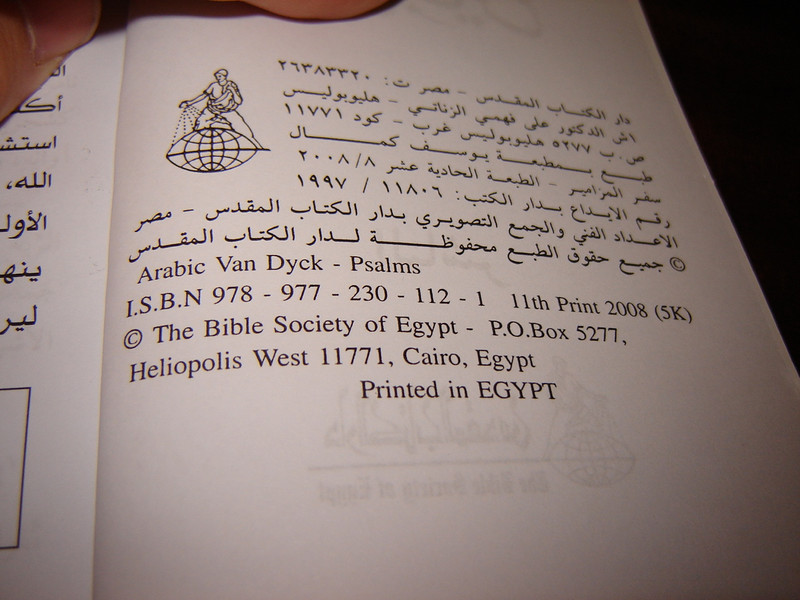 دار الكتاب المقدس - مصر ت: ٢٦٣٨٣٣٢٠
اش الدكتور على فهمي الزناتي - هليوبوليس
ص.ب ٥٢٧٧ هليوبوليس غرب - كود ١١٧٧١
طبع بمطبعة يوسف كمال
سفر المزامير - الطبعة الحادية عشر ٢٠٠٨/٨
رقم الإيداع بدار الكتب: ١١٨٠٦ / ١٩٩٧
الاعداد الفني والجمع التصويري بدار الكتاب المقدس - مصر
© جميع حقوق الطبع محفوظة لدار الكتاب المقدس
Arabic Van Dyck - Psalms
I.S.B.N 978 - 977 - 230 - 112 - 1 11th Print 2008 (5K)
© The Bible Society of Egypt - P.O.Box 5277,
Heliopolis West 11771, Cairo, Egypt
Printed in EGYPT
استش
الله،
الأول
ينه
لير
دار الكتاب المقدس
The Bible Society of Egypt